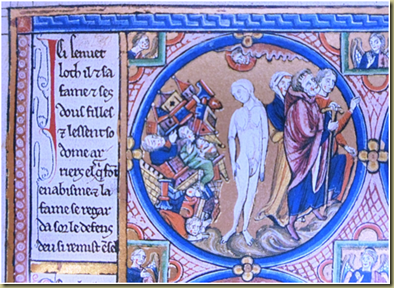 Ci senuet
loth il & sa
fame & ses
dous filles
& lessent so
dome ar
riers el q̃ fõt
en abisme & la
fame se regar
da sor le defens
deu si remist